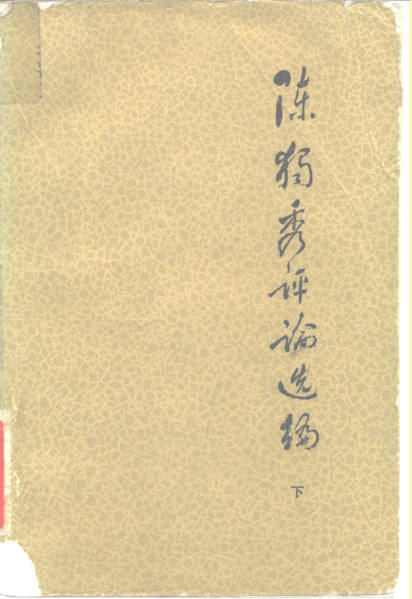 陈独秀评论选编
下